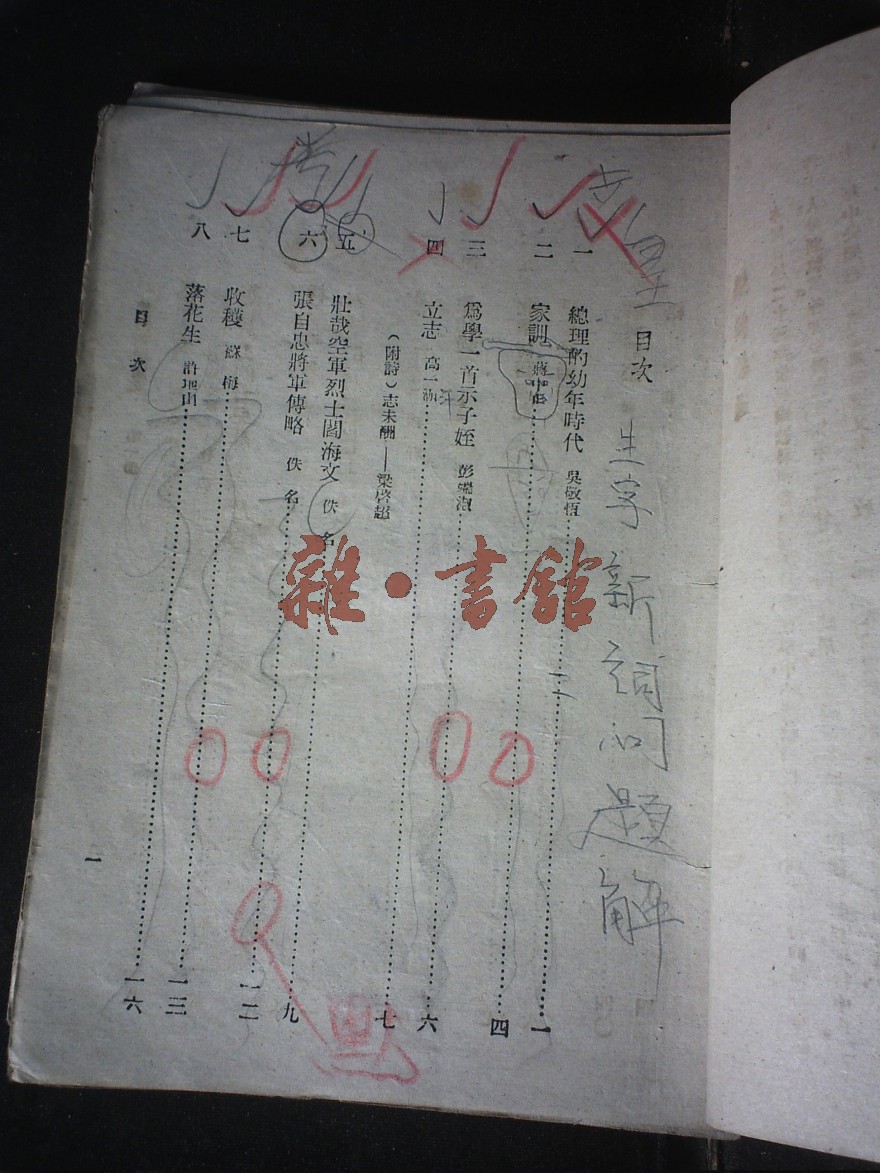 目次 生字新詞问題解
一 總理的幼年時代 吳敬恆……一
二 家訓……四
三 爲學一首示子姪 彭端淑……六
四 立志 高一涵……七
(附詩)志未酬——梁啓超
五 壯哉空軍烈士閻海文 佚名……九
六 張自忠將軍傳略 佚名……一二
七 收穫 蘇梅……一三
八 落花生 許地山……一六
目次 一
雜·書舘